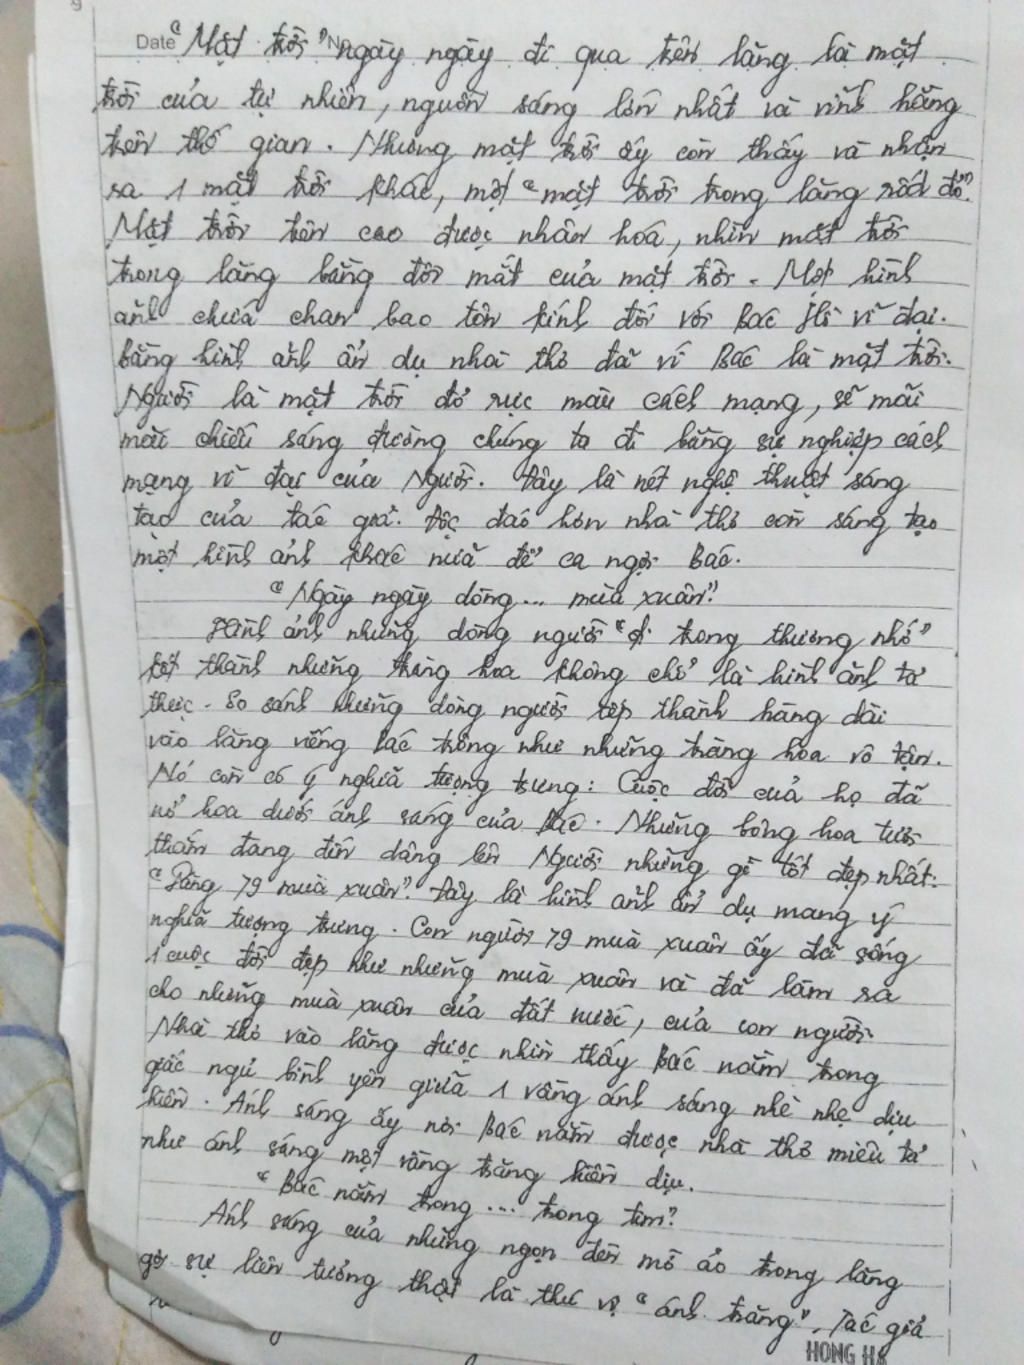 Date No
"Mặt trời" ngày ngày đi qua trên lăng là mặt
trời của tự nhiên, nguồn sáng lớn nhất và vĩnh hằng
trên thế gian. Nhưng mặt trời ấy còn thấy và nhận
ra 1 mặt trời khác, một "mặt trời trong lăng rất đỏ".
Mặt trời trên cao được nhân hoá, nhìn mặt trời
trong lăng bằng đôi mắt của mặt trời. Một hình
ảnh chứa chan bao tôn kính đối với Bác Hồ vĩ đại.
bằng hình ảnh ẩn dụ nhà thơ đã ví Bác là mặt trời.
Người là mặt trời đỏ rực màu cách mạng, sẽ mãi
mãi chiếu sáng đường chúng ta đi bằng sự nghiệp cách
mạng vĩ đại của Người. Đây là nét nghệ thuật sáng
tạo của tác giả. Độc đáo hơn nhà thơ còn sáng tạo
một hình ảnh khác nữa để ca ngợi Bác.
"Ngày ngày dòng... mùa xuân"
Hình ảnh những dòng người "đi trong thương nhớ"
kết thành những tràng hoa không chỉ là hình ảnh tả
thực. So sánh những dòng người xếp thành hàng dài
vào lăng viếng Bác trông như những tràng hoa vô tận.
Nó còn có ý nghĩa tượng trưng: Cuộc đời của họ đã
nở hoa dưới ánh sáng của Bác. Những bông hoa tươi
thắm đang đến dâng lên Người những gì tốt đẹp nhất:
"Dâng 79 mùa xuân". Đây là hình ảnh ẩn dụ mang ý
nghĩa tượng trưng. Con người 79 mùa xuân ấy đã sống
1 cuộc đời đẹp như những mùa xuân và đã làm ra
cho những mùa xuân của đất nước, của con người.
Nhà thơ vào lăng được nhìn thấy Bác nằm trong
giấc ngủ bình yên giữa 1 vầng ánh sáng nhè nhẹ dịu
hiền. Ánh sáng ấy nơi Bác nằm được nhà thơ miêu tả
như ánh sáng một vầng trăng hiền dịu.
"Bác nằm trong... trong tim"
Ánh sáng của những ngọn đèn mờ ảo trong lăng
gợi sự liên tưởng thật là thú vị "ánh trăng". Tác giả
HONG HA